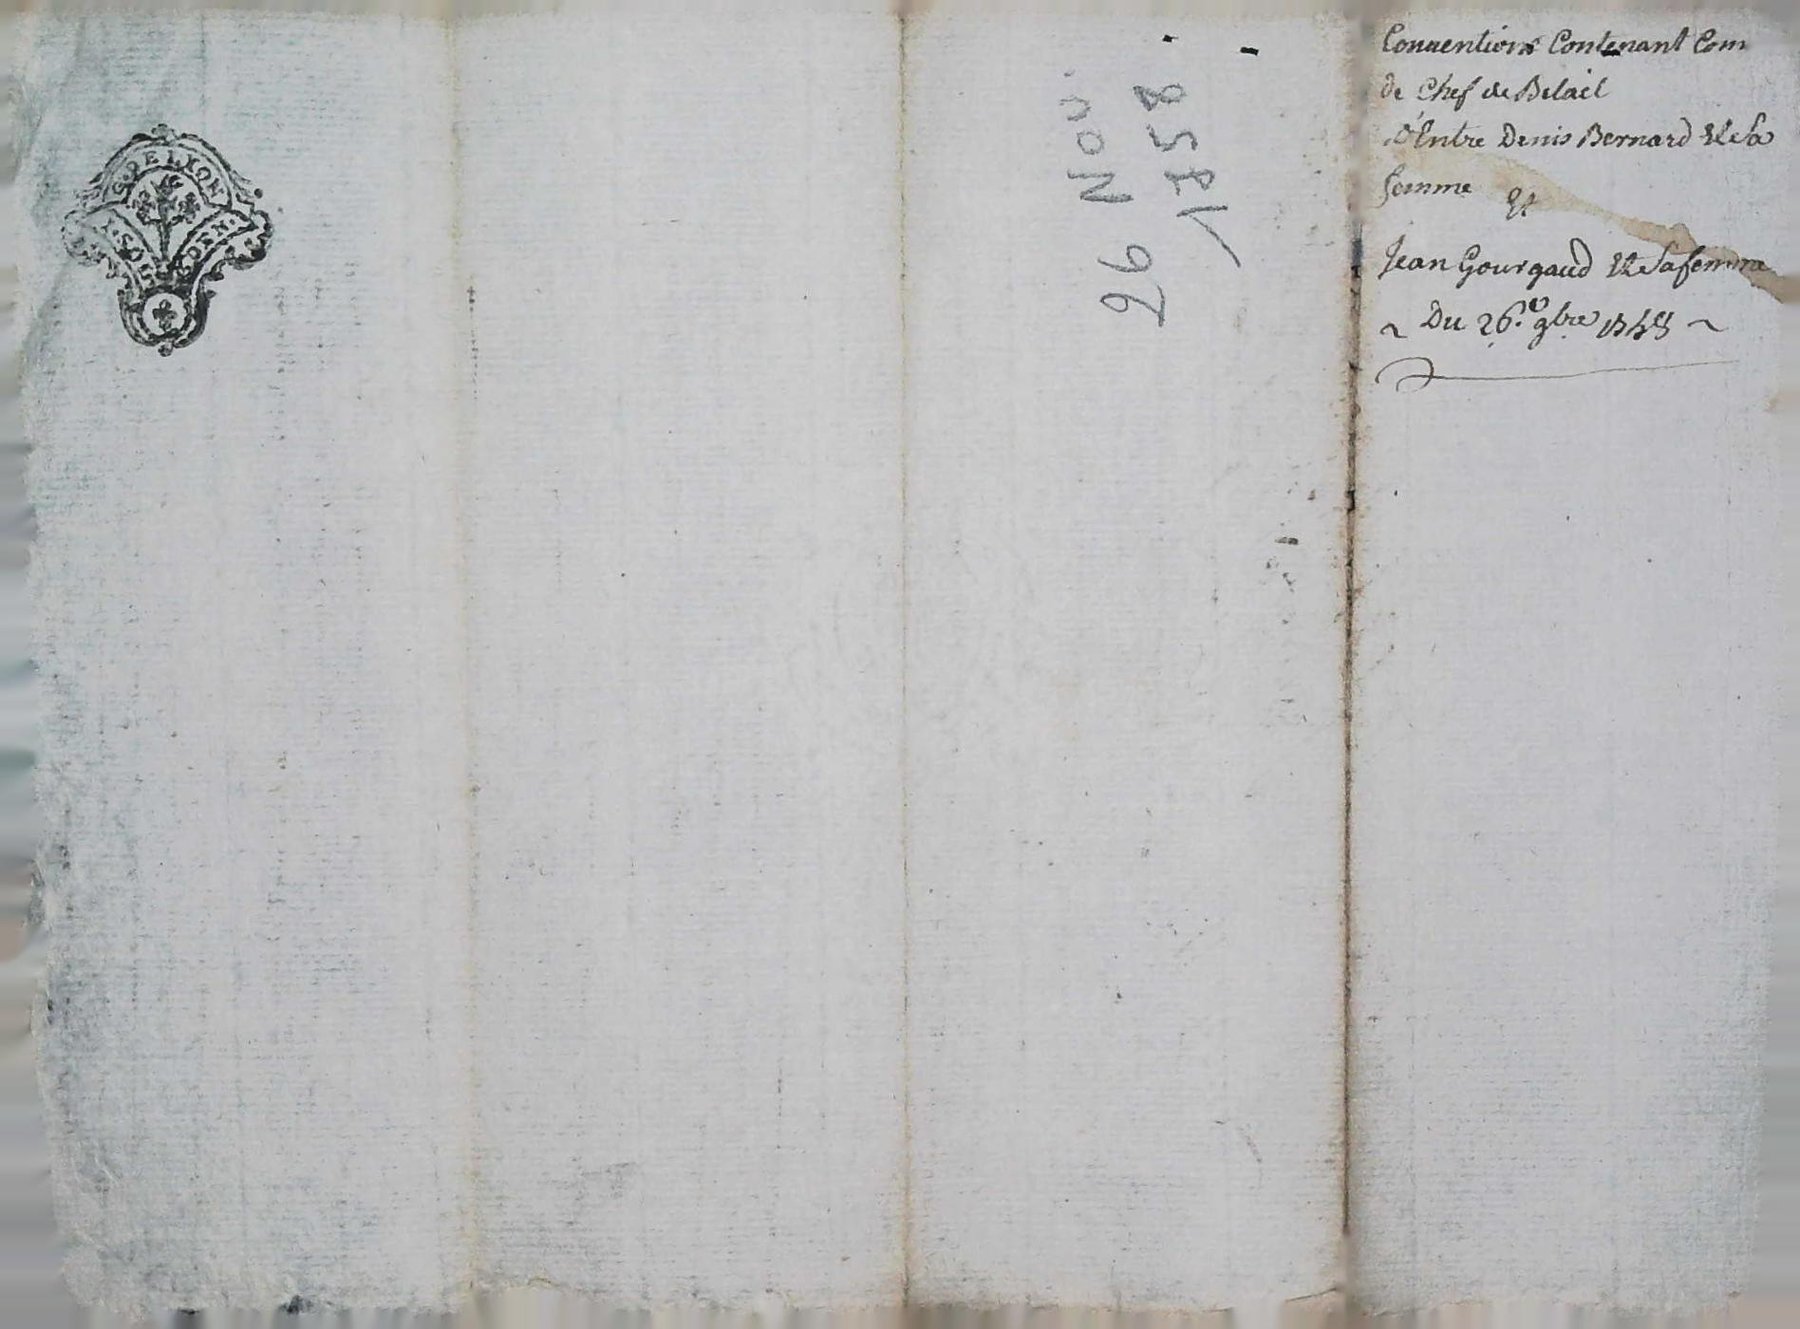 G. DE LION
1. SOL
CORN.
26 Nov.
1858
Conventions Contenant Com
de Chef de Bétail
D'Entre Denis Bernard Et Sa
femme Et
Jean Gourgaud Et Sa femme
~ Du 26.e 9bre ~